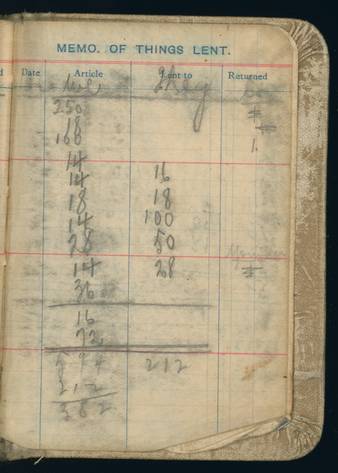 MEMO. OF THINGS LENT.
Date Article Lent to Returned
250
18
168
14
14 16
18 18
14 100
28 50
14 28
36
16
72
594 212
212
382